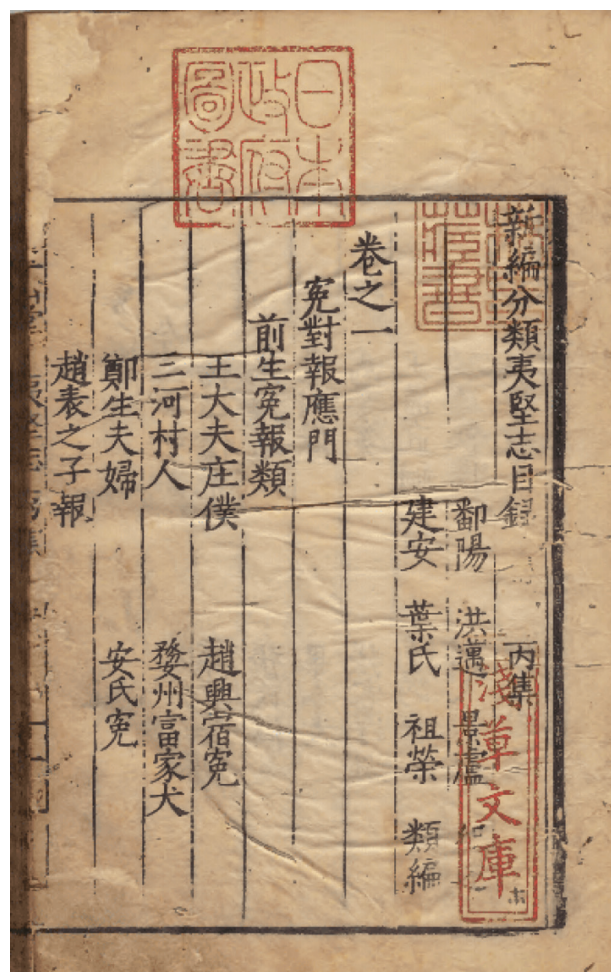 日本
政府
圖書
新編分類夷堅志目録 丙集
鄱陽 洪邁 景盧
建安 葉氏 祖榮 類編
淺草文庫
卷之一
寃對報應門
前生寃報類
王大夫庄僕 趙興宿寃
三河村人 婺州富家犬
鄭生夫婦 安氏寃
趙表之子報